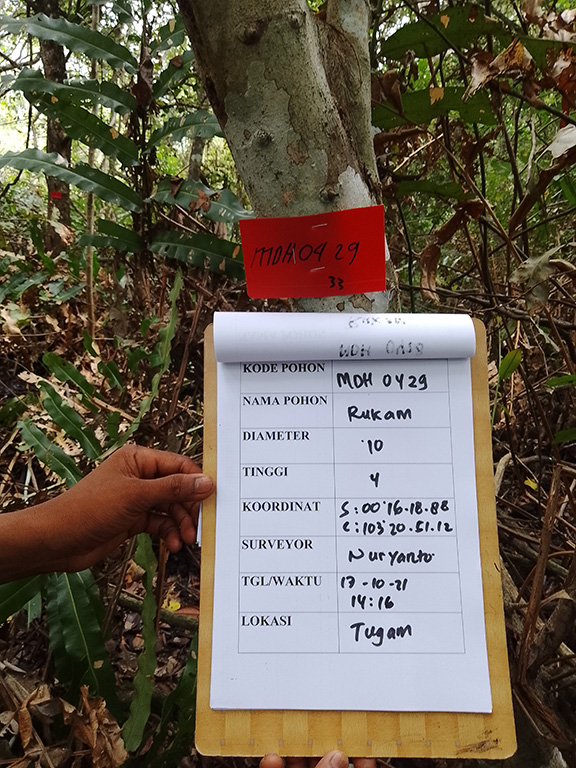 MDH 04 29
33
KODE POHON MDH 0429
NAMA POHON Rukam
DIAMETER 10
TINGGI 4
KOORDINAT S:00°16.18.88
E:103°20.51.12
SURVEYOR Nuryanto
TGL/WAKTU 17-10-21
14:16
LOKASI Tugam